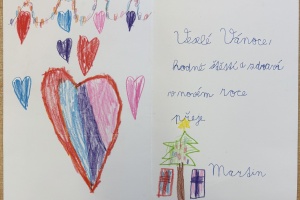 Veselé Vánoce,
hodně štěstí a zdraví
v novém roce
přeje
Martin